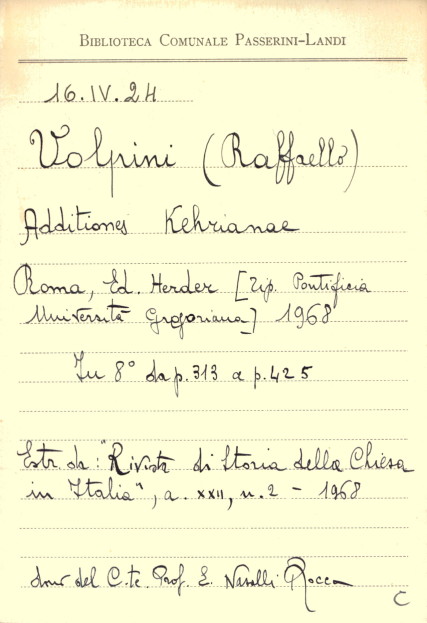 BIBLIOTECA COMUNALE PASSERINI-LANDI
16.IV.24
Volpini (Raffaello)
Additiones Kehrianae
Roma, Ed. Herder [Tip. Pontificia
Università Gregoriana] 1968
In 8° da p. 313 a p. 425
Estr. da: "Rivista di Storia della Chiesa
in Italia", a. XXII, n. 2 - 1968
del C.te Prof. E. Nasalli Rocca
C